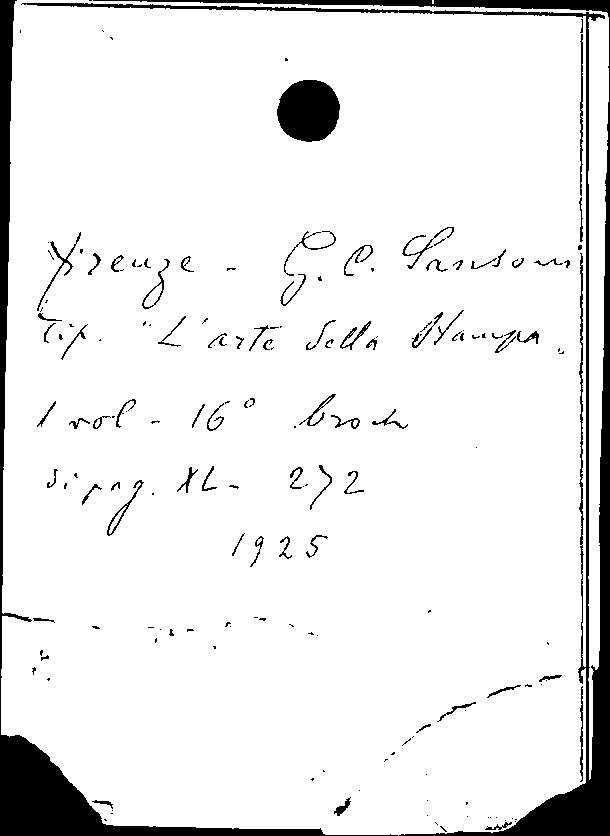 Firenze - G. C. Sansoni
Tip. "L'arte della Stampa"
1 vol - 16° broch
di pag. XL - 272
1925